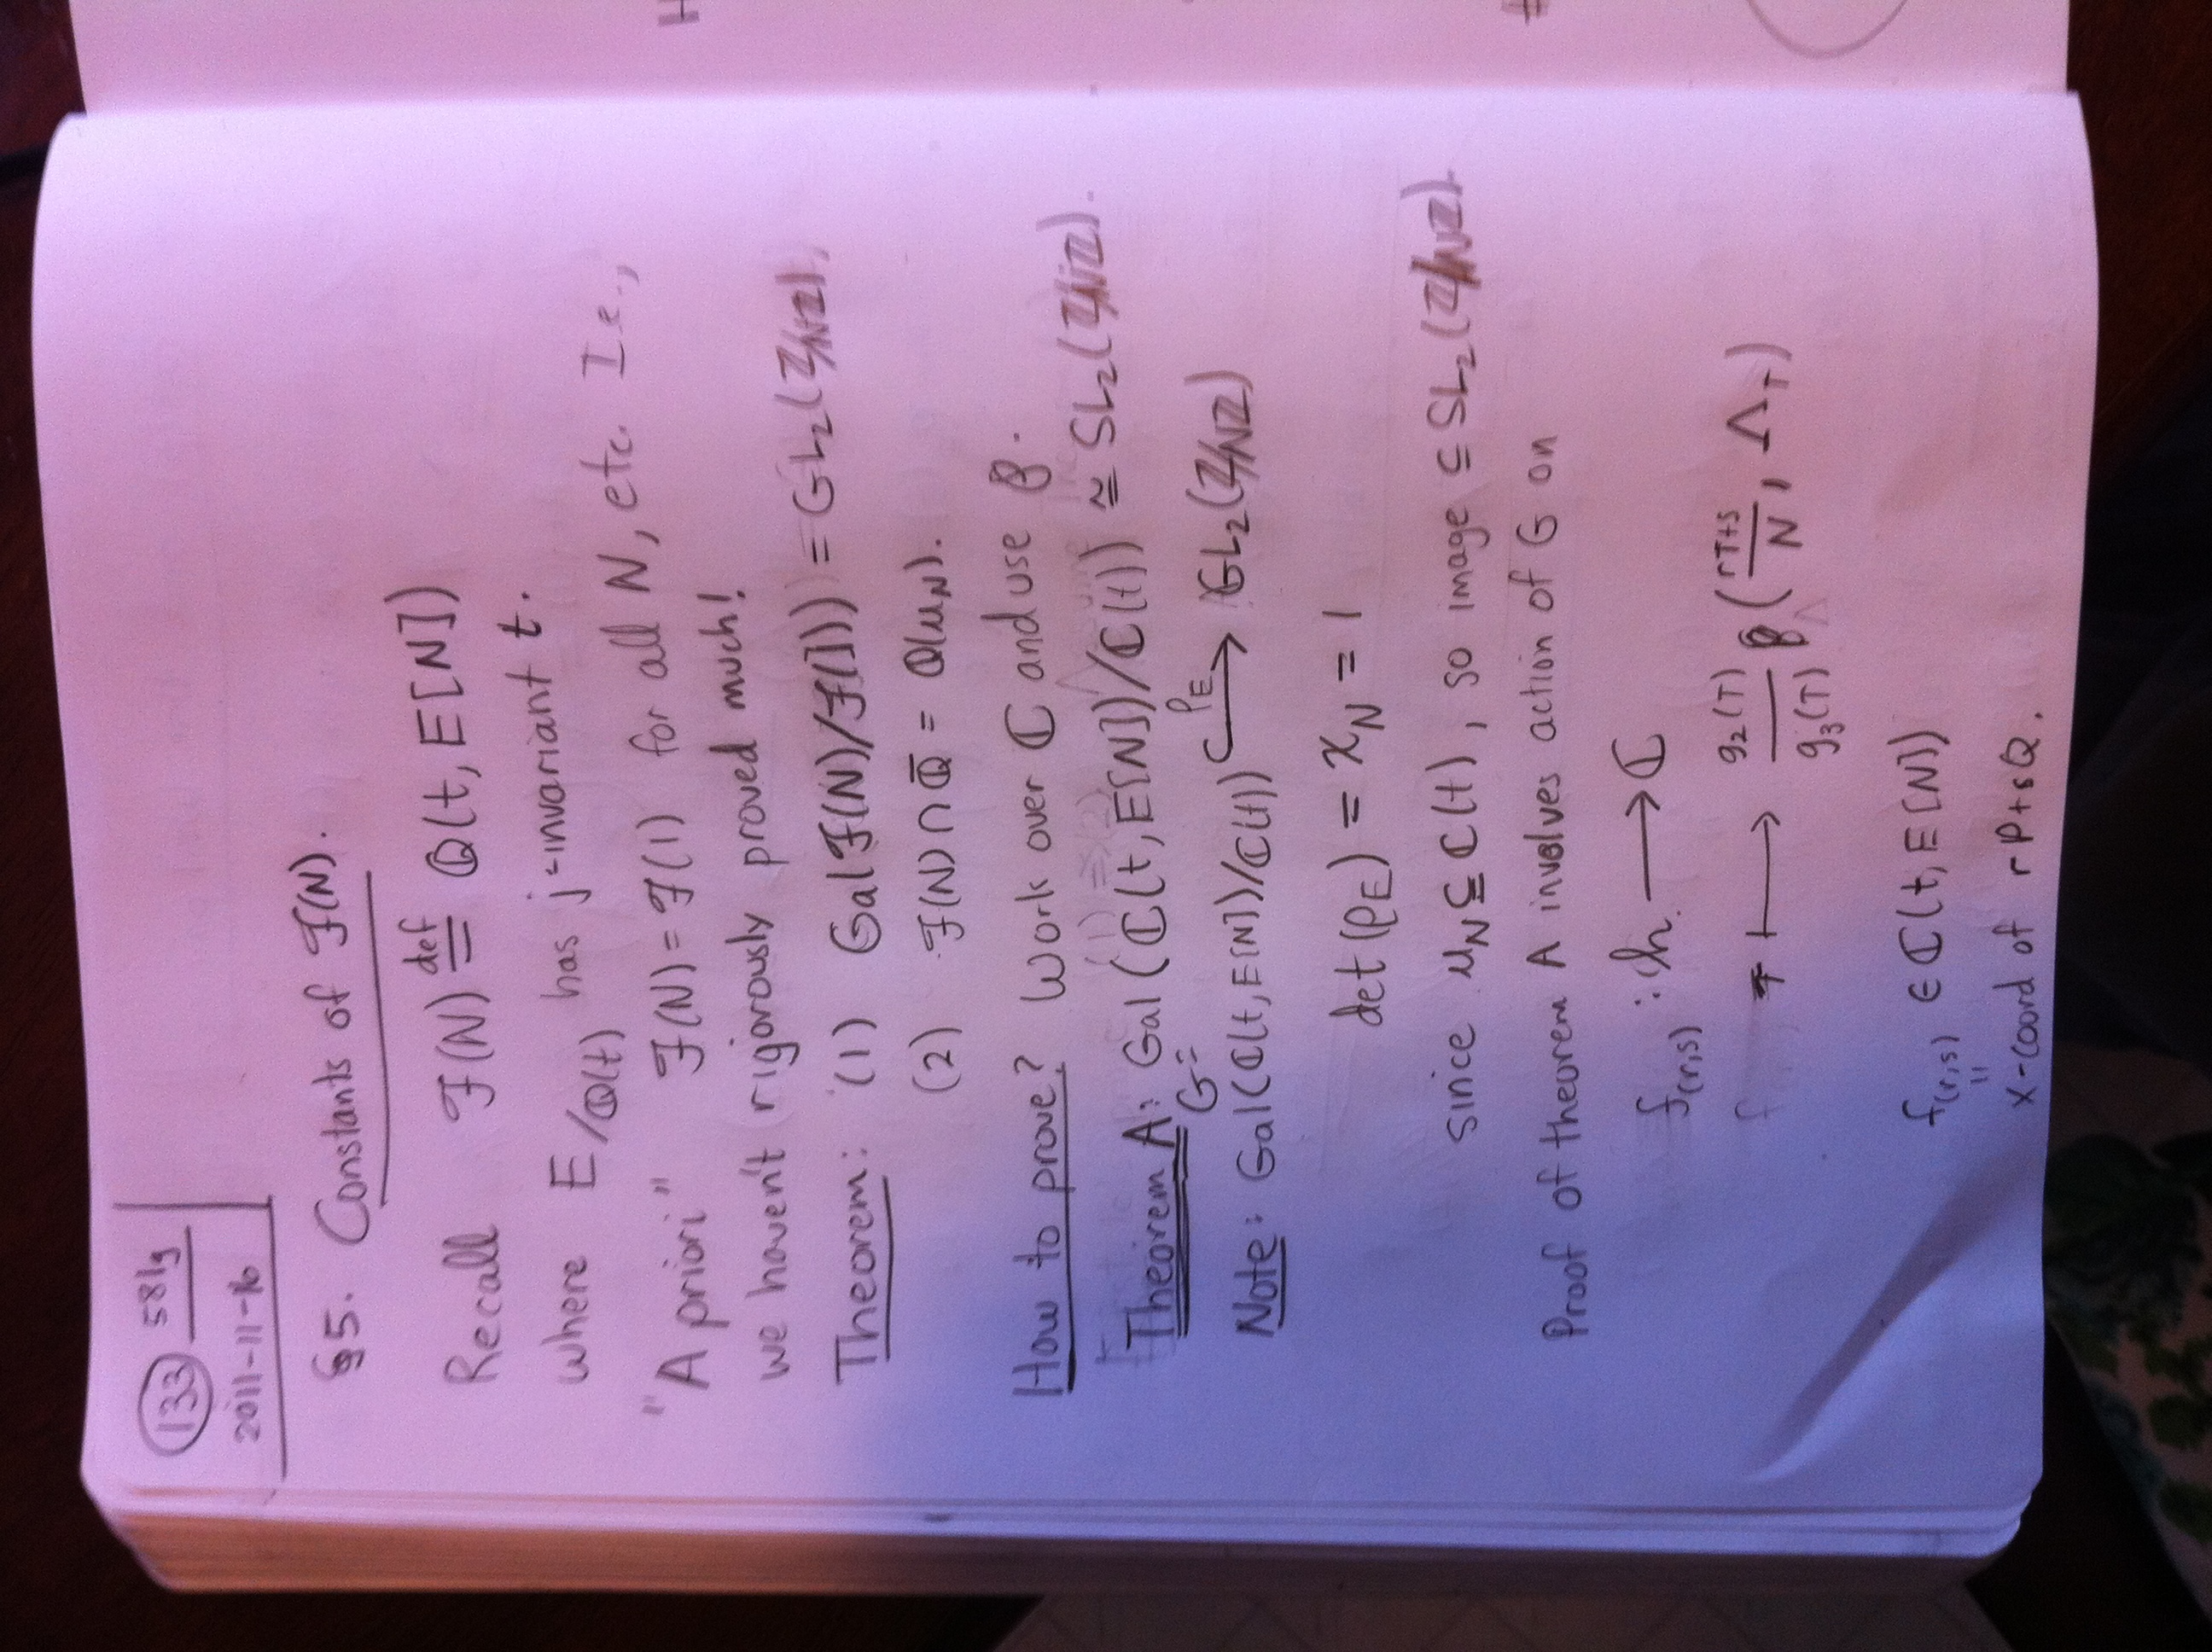 133 581g
2011-11-16
§5. Constants of ℱ(N).
Recall ℱ(N) def= ℚ(t, E[N])
where E/ℚ(t) has j-invariant t.
"A priori" ℱ(N) = ℱ(1) for all N, etc. I.e.,
we haven't rigorously proved much!
Theorem: (1) Gal(ℱ(N)/ℱ(1)) = GL₂(ℤ/Nℤ),
(2) ℱ(N) ∩ ℚ̄ = ℚ(μ_N).
How to prove? Work over ℂ and use ℘.
Theorem A: Gal(ℂ(t, E[N])/ℂ(t)) ≅ SL₂(ℤ/Nℤ).
G =
Note: Gal(ℂ(t, E[N])/ℂ(t)) ↪^{ρ_E} GL₂(ℤ/Nℤ)
det(ρ_E) = χ_N = 1
since μ_N ⊆ ℂ(t), so image ⊆ SL₂(ℤ/Nℤ).
Proof of theorem A involves action of G on
f_(r,s) : h → ℂ
τ ↦ g₂(τ)/g₃(τ) ℘((rτ+s)/N, Λ_τ)
f_(r,s) ∈ ℂ(t, E[N])
"
x-coord of rP+sQ.